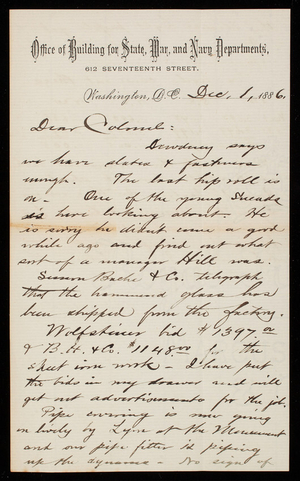 Office of Building for State, War, and Navy Departments,
612 SEVENTEENTH STREET.
Washington, D.C. Dec. 1, 1886.
Dear Colonel:
Dewdney says
we have slates & fasteners
enough. The last hip roll is
on. One of the young Sneads
is here looking about. He
is sorry he didnt come a good
while ago and find out what
sort of a manager Hill was.
Simon Bache & Co. telegraph
that the hammered glass has
been shipped from the factory.
Wolfsteiner bid $1397 00
& B. H. & Co. $1148 00 for the
sheet iron work - I have put
the bids in my drawer and will
get out advertisements for the job.
Pipe covering is now going
on lively by at the Monument
and our pipe fitter is piping
up the dynamo - No sign of